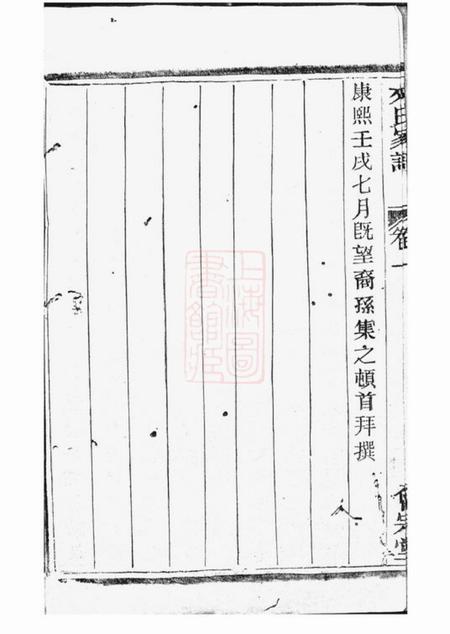 康熙壬戌七月既望裔孫集之頓首拜撰
氏家譜
卷一
上海圖書館藏